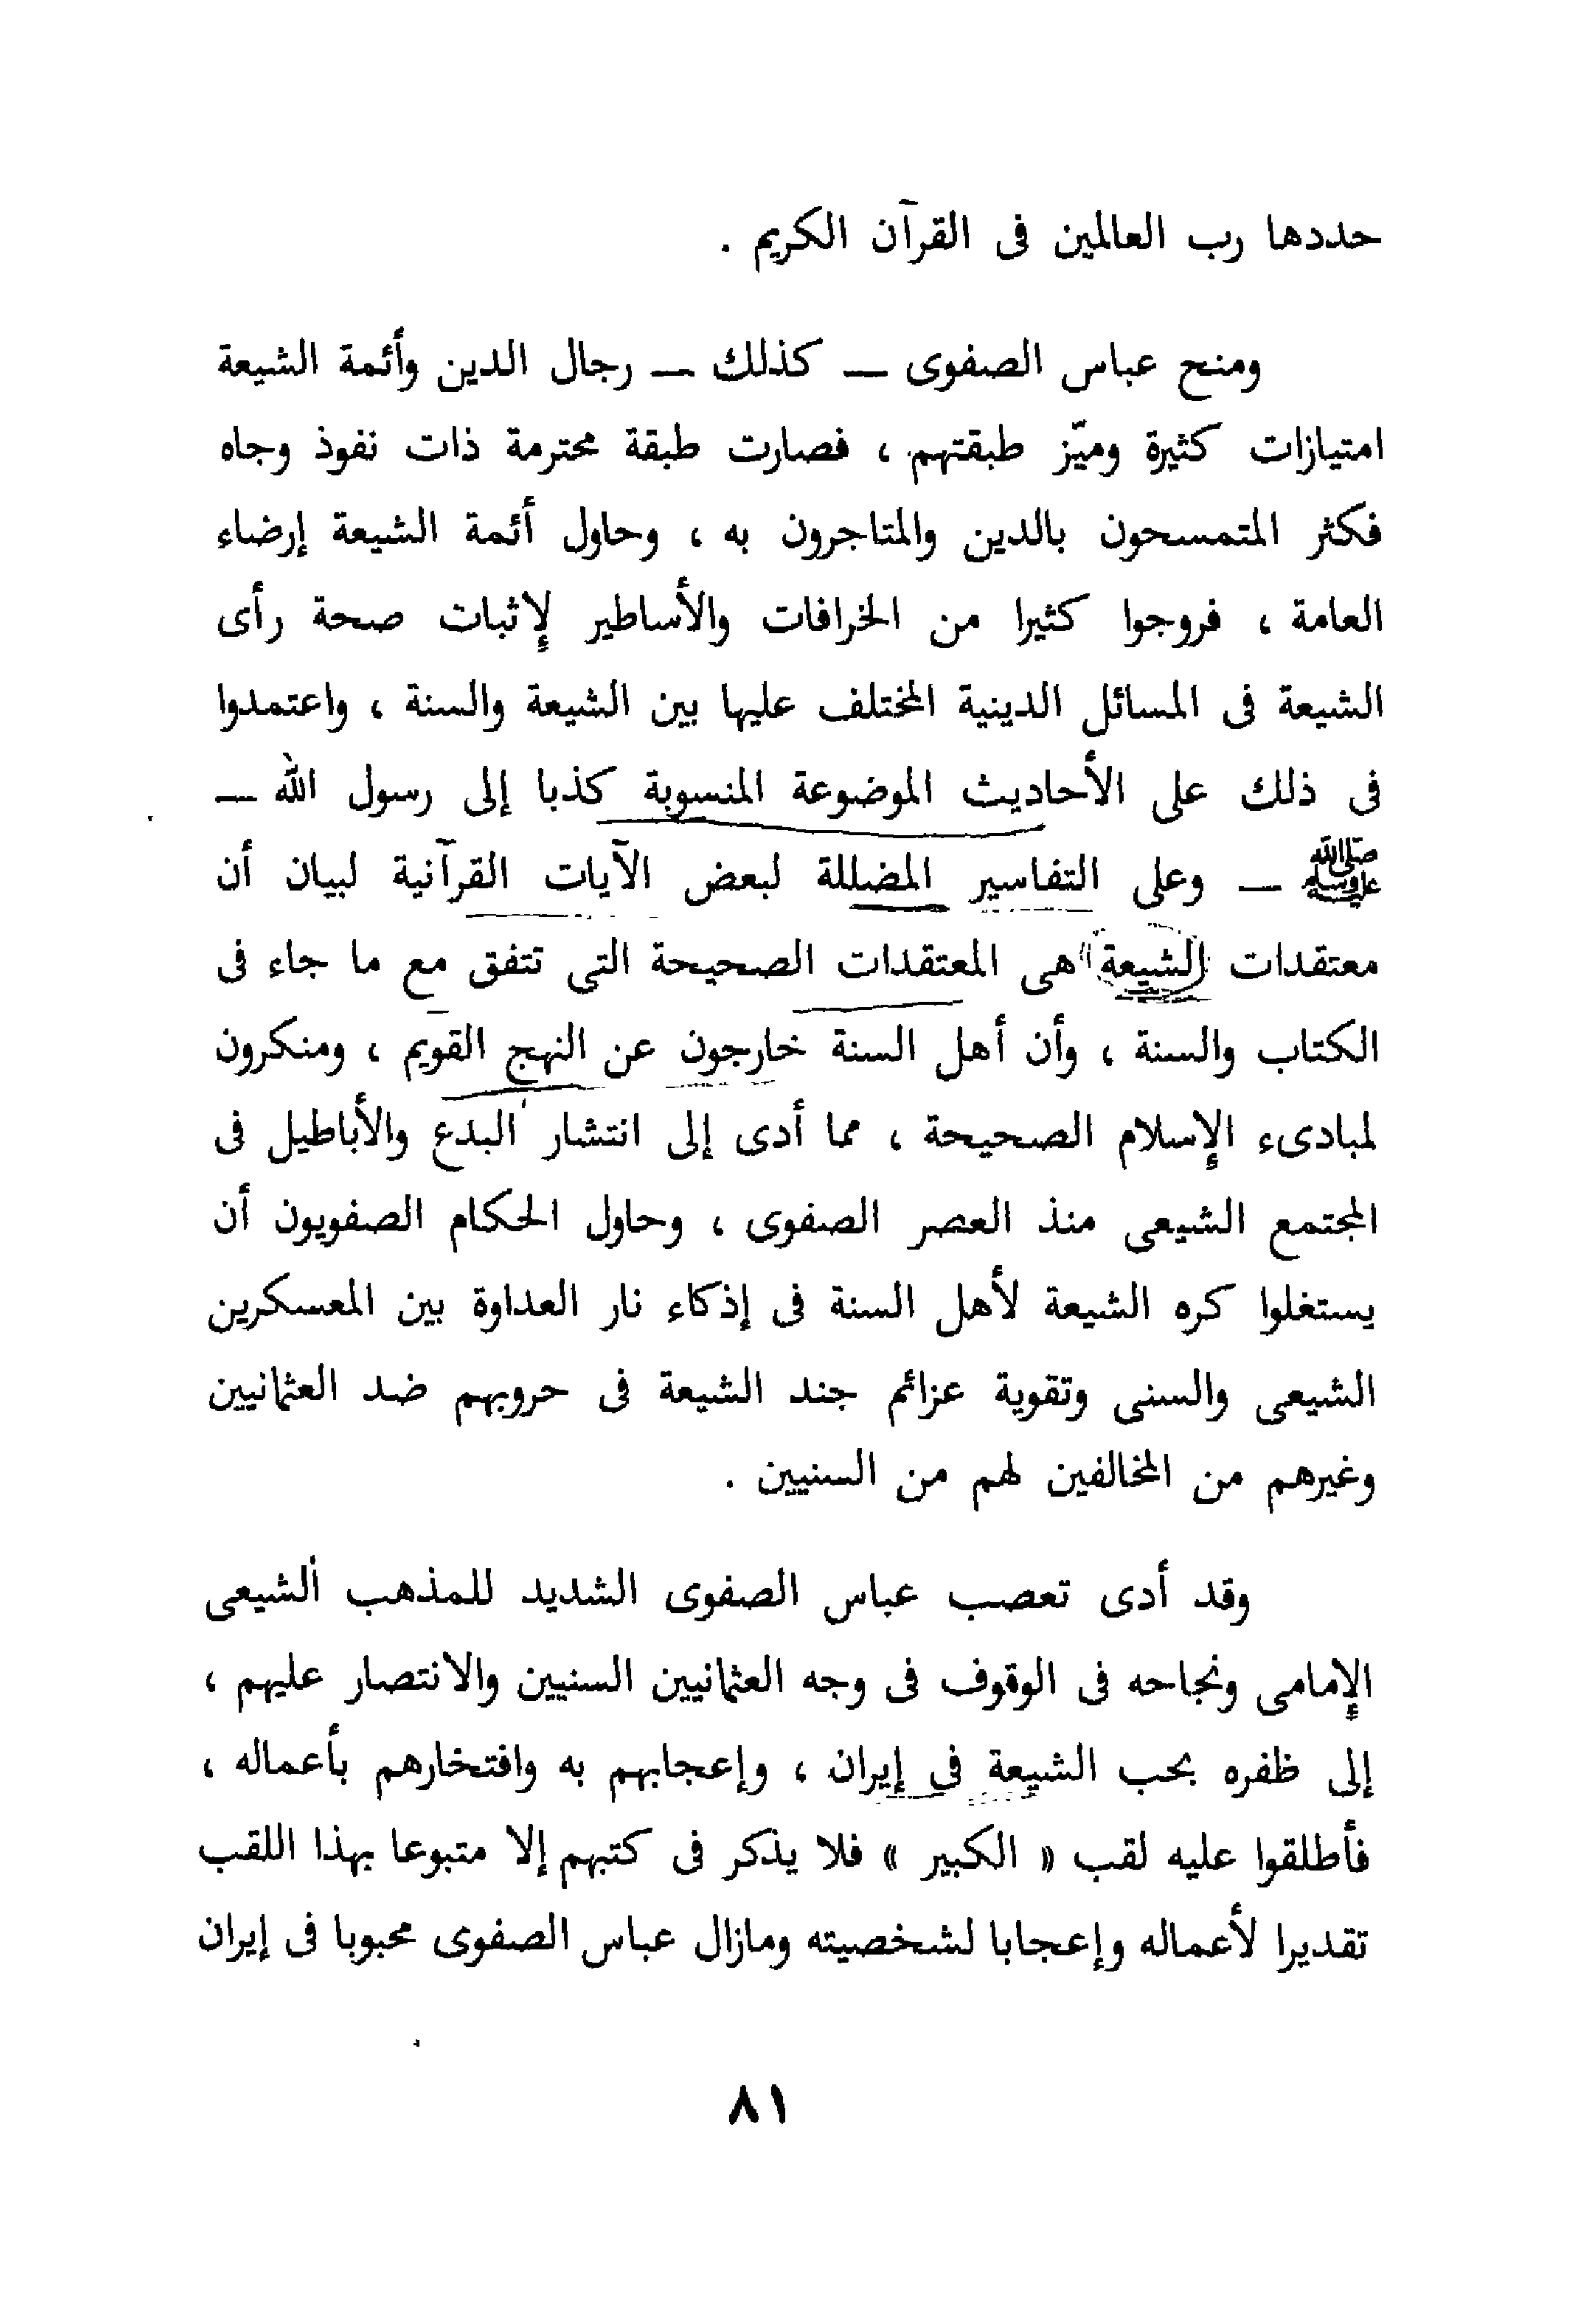 حددها رب العالمين فى القرآن الكريم .
ومنح عباس الصفوى — كذلك — رجال الدين وأئمة الشيعة
امتيازات كثيرة وميّز طبقتهم ، فصارت طبقة محترمة ذات نفوذ وجاه
فكثر المتمسحون بالدين والمتاجرون به ، وحاول أئمة الشيعة إرضاء
العامة ، فروجوا كثيرا من الخرافات والأساطير لإثبات صحة رأى
الشيعة فى المسائل الدينية المختلف عليها بين الشيعة والسنة ، واعتمدوا
فى ذلك على الأحاديث الموضوعة المنسوبة كذبا إلى رسول الله —
ﷺ — وعلى التفاسير المضللة لبعض الآيات القرآنية لبيان أن
معتقدات الشيعة هى المعتقدات الصحيحة التى تتفق مع ما جاء فى
الكتاب والسنة ، وأن أهل السنة خارجون عن النهج القويم ، ومنكرون
لمبادىء الإسلام الصحيحة ، مما أدى إلى انتشار البدع والأباطيل فى
المجتمع الشيعى منذ العصر الصفوى ، وحاول الحكام الصفويون أن
يستغلوا كره الشيعة لأهل السنة فى إذكاء نار العداوة بين المعسكرين
الشيعى والسنى وتقوية عزائم جند الشيعة فى حروبهم ضد العثمانيين
وغيرهم من المخالفين لهم من السنيين .
وقد أدى تعصب عباس الصفوى الشديد للمذهب الشيعى
الإمامى ونجاحه فى الوقوف فى وجه العثمانيين السنيين والانتصار عليهم ،
إلى ظفره بحب الشيعة فى إيران ، وإعجابهم به وافتخارهم بأعماله ،
فأطلقوا عليه لقب « الكبير » فلا يذكر فى كتبهم إلا متبوعا بهذا اللقب
تقديرا لأعماله وإعجابا لشخصيته ومازال عباس الصفوى محبوبا فى إيران
٨١